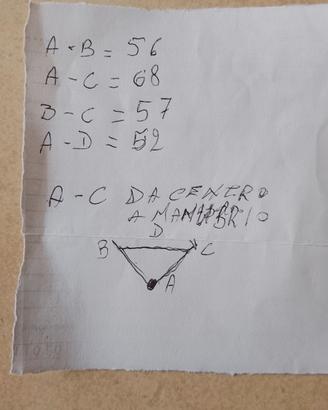 A-B = 56
A-C = 68
B-C = 57
A-D = 52
A-C DA CENTRO
A MANUBRIO
D
B C
A